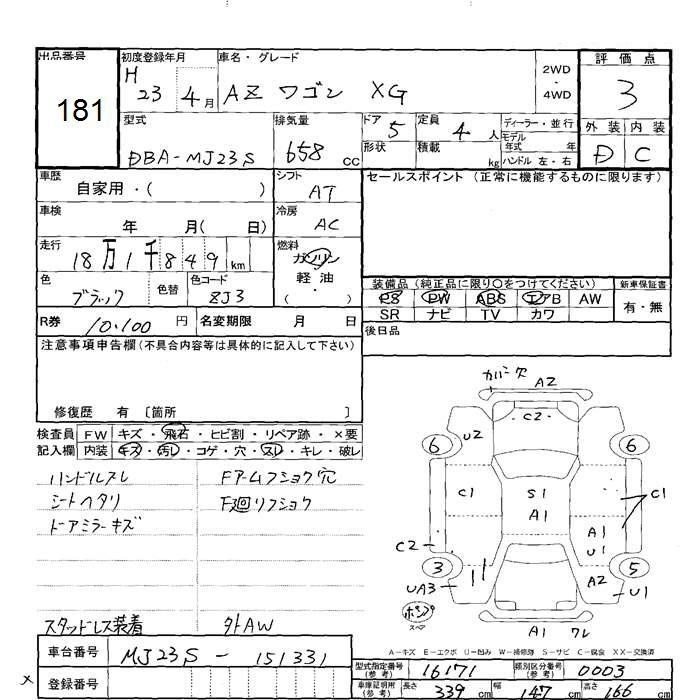 出品番号
181
初度登録年月
H 23年 4月
車名・グレード
AZ ワゴン XG
2WD
・
4WD
評価点
3
型式
DBA-MJ23S
排気量
658 cc
ドア 5
形状
定員 4 人
積載 kg
ディーラー・並行
モデル
年式 年
ハンドル 左・右
外装 内装
D C
車歴
自家用・( )
シフト
AT
セールスポイント (正常に機能するものに限ります)
車検
年 月( 日)
冷房
AC
走行
18万1千849 km
燃料
ガソリン
軽油
( )
色
ブラック
色替
色コード
8J3
装備品 (純正品に限り○をつけてください)
PS PW ABS エアB AW
SR ナビ TV カワ
新車保証書
有・無
R券 10,100 円
名変期限 月 日
後日品
注意事項申告欄(不具合内容等は具体的に記入して下さい)
修復歴 有〔箇所 〕
検査員 FW キズ・飛石・ヒビ割・リペア跡・×要
記入欄 内装 キズ・汚レ・コゲ・穴・スレ・キレ・破レ
ハンドルスレ
シートヘタリ
ドアミラーキズ
Fアームフショク穴
F廻リフショク
スタッドレス装着
外AW
カバー欠 A2
C2
U2
6 6
C1 S1 C1
A1 A1
U1
C2
3 5
A2
UA3 U1
ポンプ
スペア
A1 ワレ
A-キズ E-エクボ U-凹み W-補修跡 S-サビ C-腐食 XX-交換済
車台番号 MJ23S - 151331
登録番号
型式指定番号
(参考)
16171
類別区分番号
(参考)
0003
車庫証明用
(参考)
長さ 339 cm 幅 147 cm 高さ 166 cm